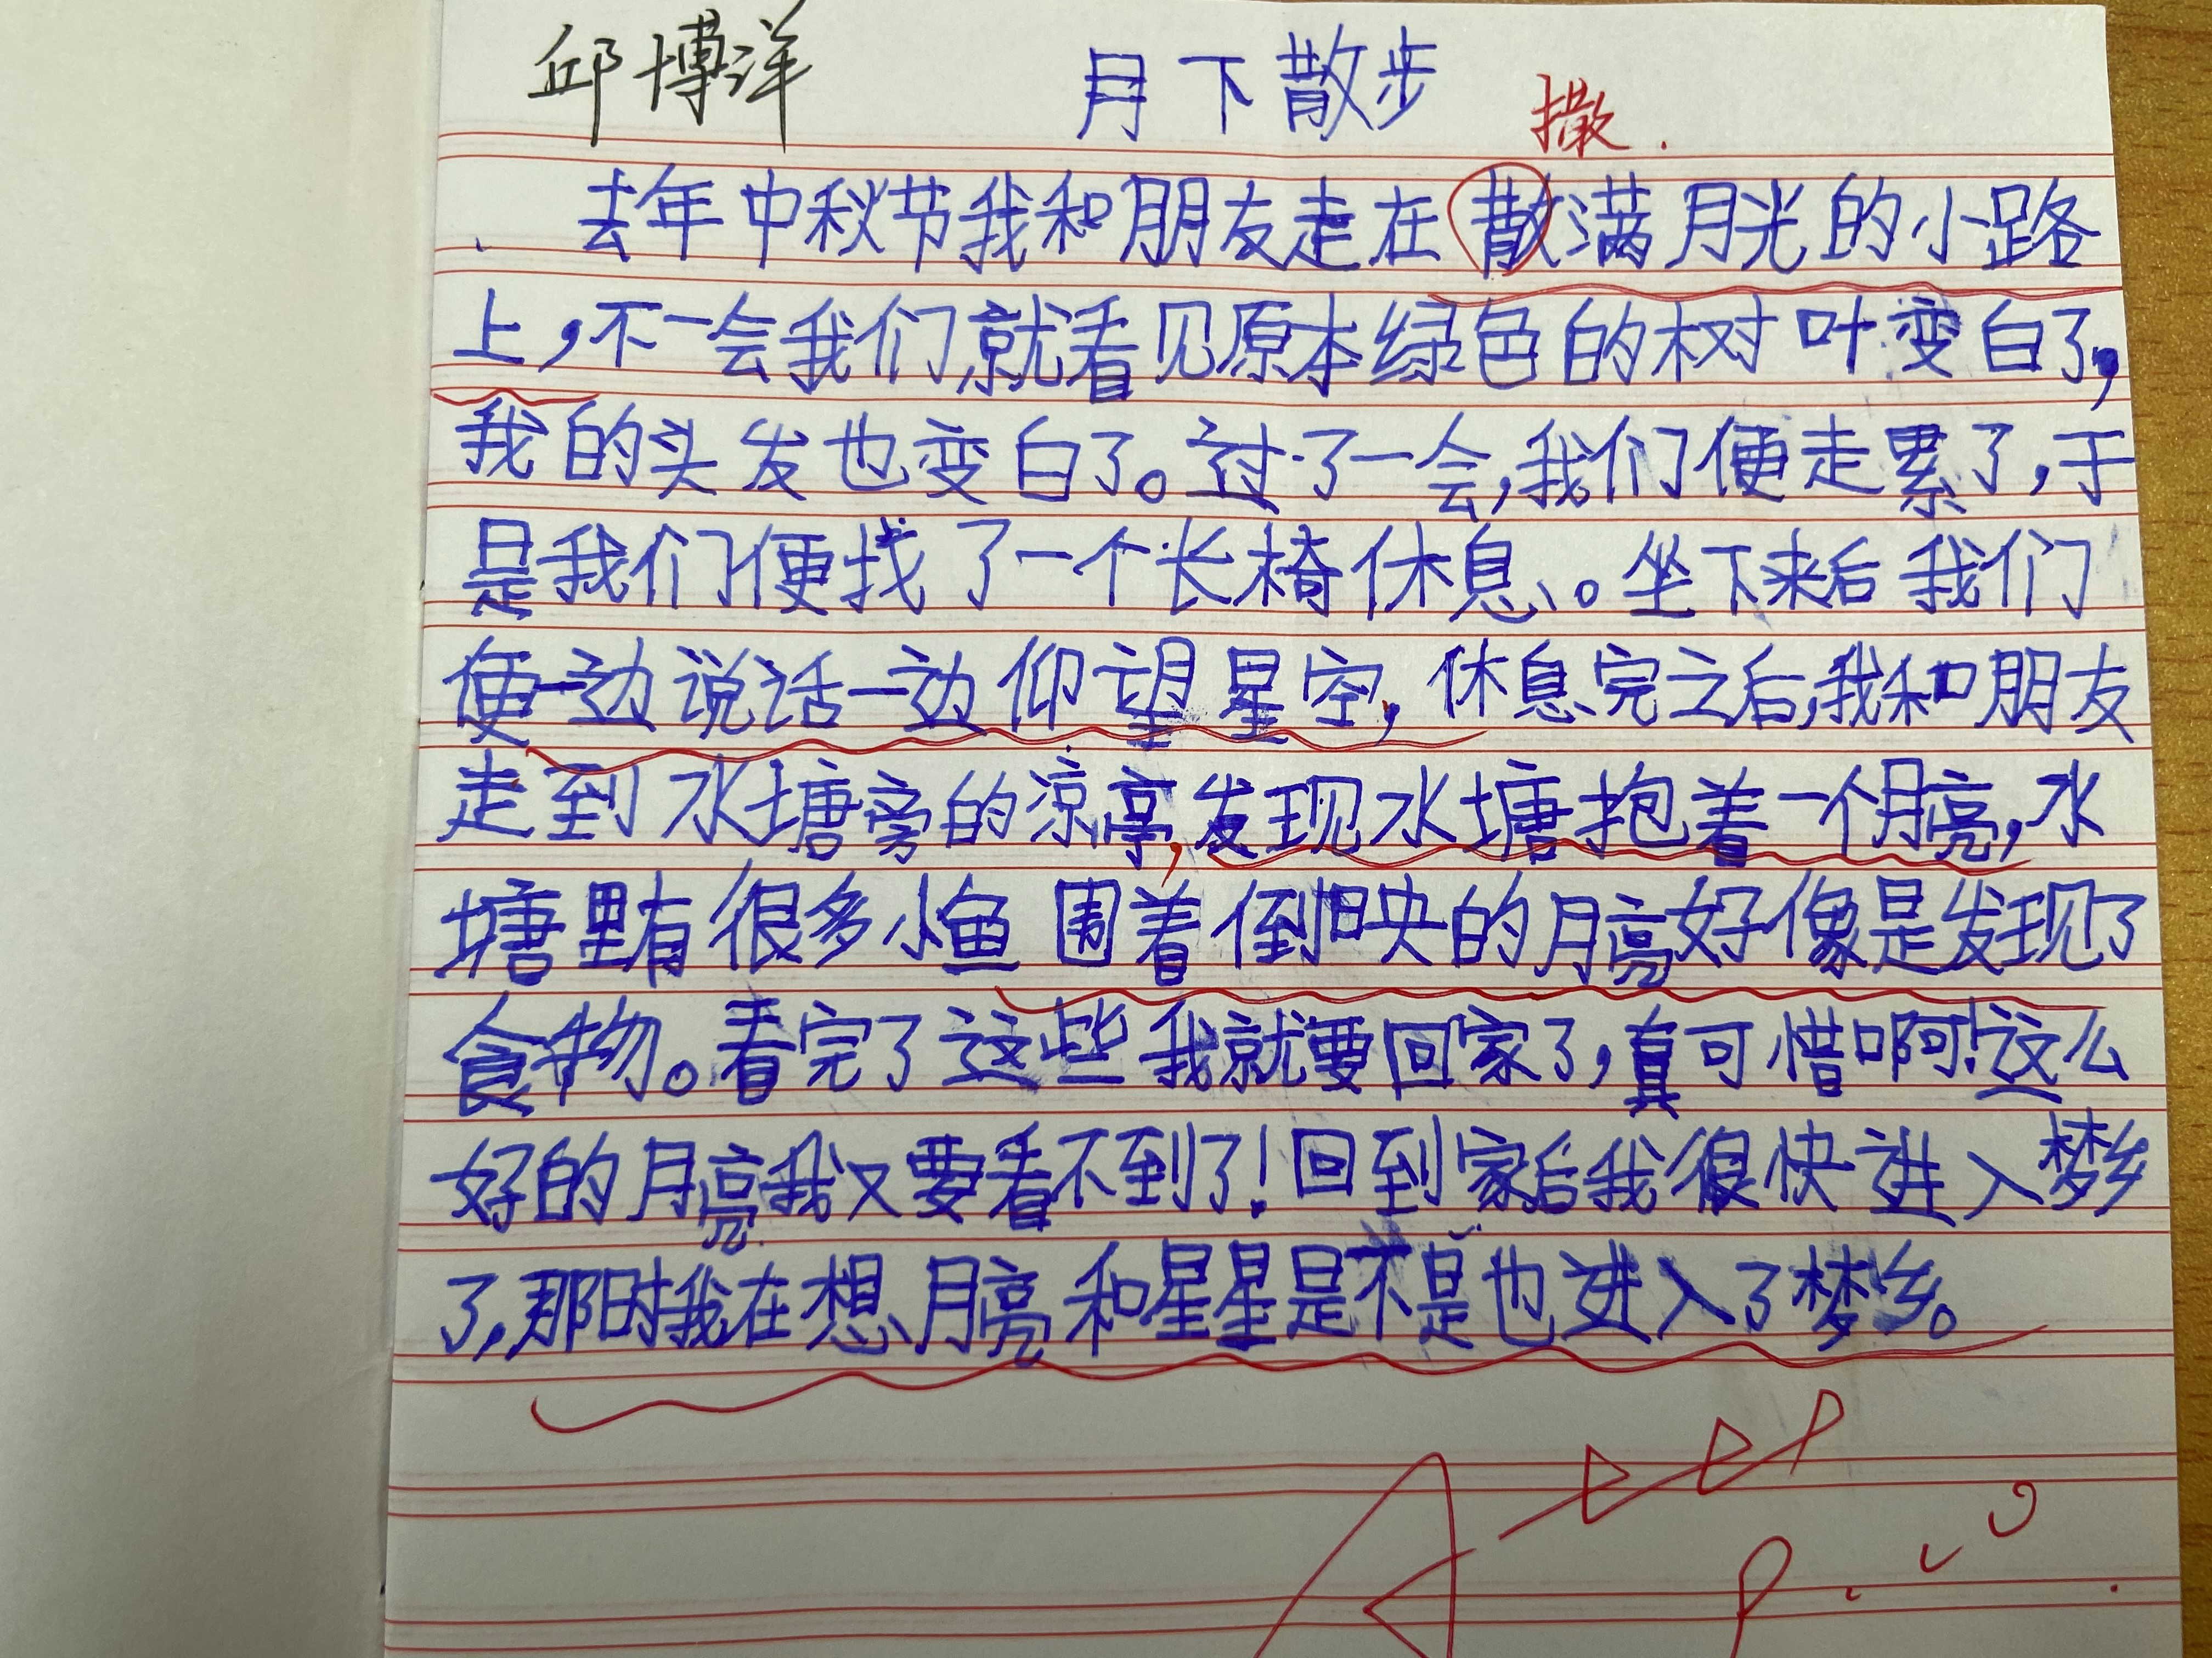 邱博洋 月下散步 撒.
去年中秋节我和朋友走在散满月光的小路
上,不一会我们就看见原本绿色的树叶变白了,
我的头发也变白了。过了一会,我们便走累了,于
是我们便找了一个长椅休息。坐下来后我们
便一边说话一边仰望星空,休息完之后,我和朋友
走到水塘旁的凉亭,发现水塘抱着一个月亮,水
塘里有很多小鱼围着倒映的月亮好像是发现了
食物。看完了这些我就要回家了,真可惜啊!这么
好的月亮我又要看不到了!回到家后我很快进入梦乡
了,那时我在想、月亮和星星是不是也进入了梦乡。
A